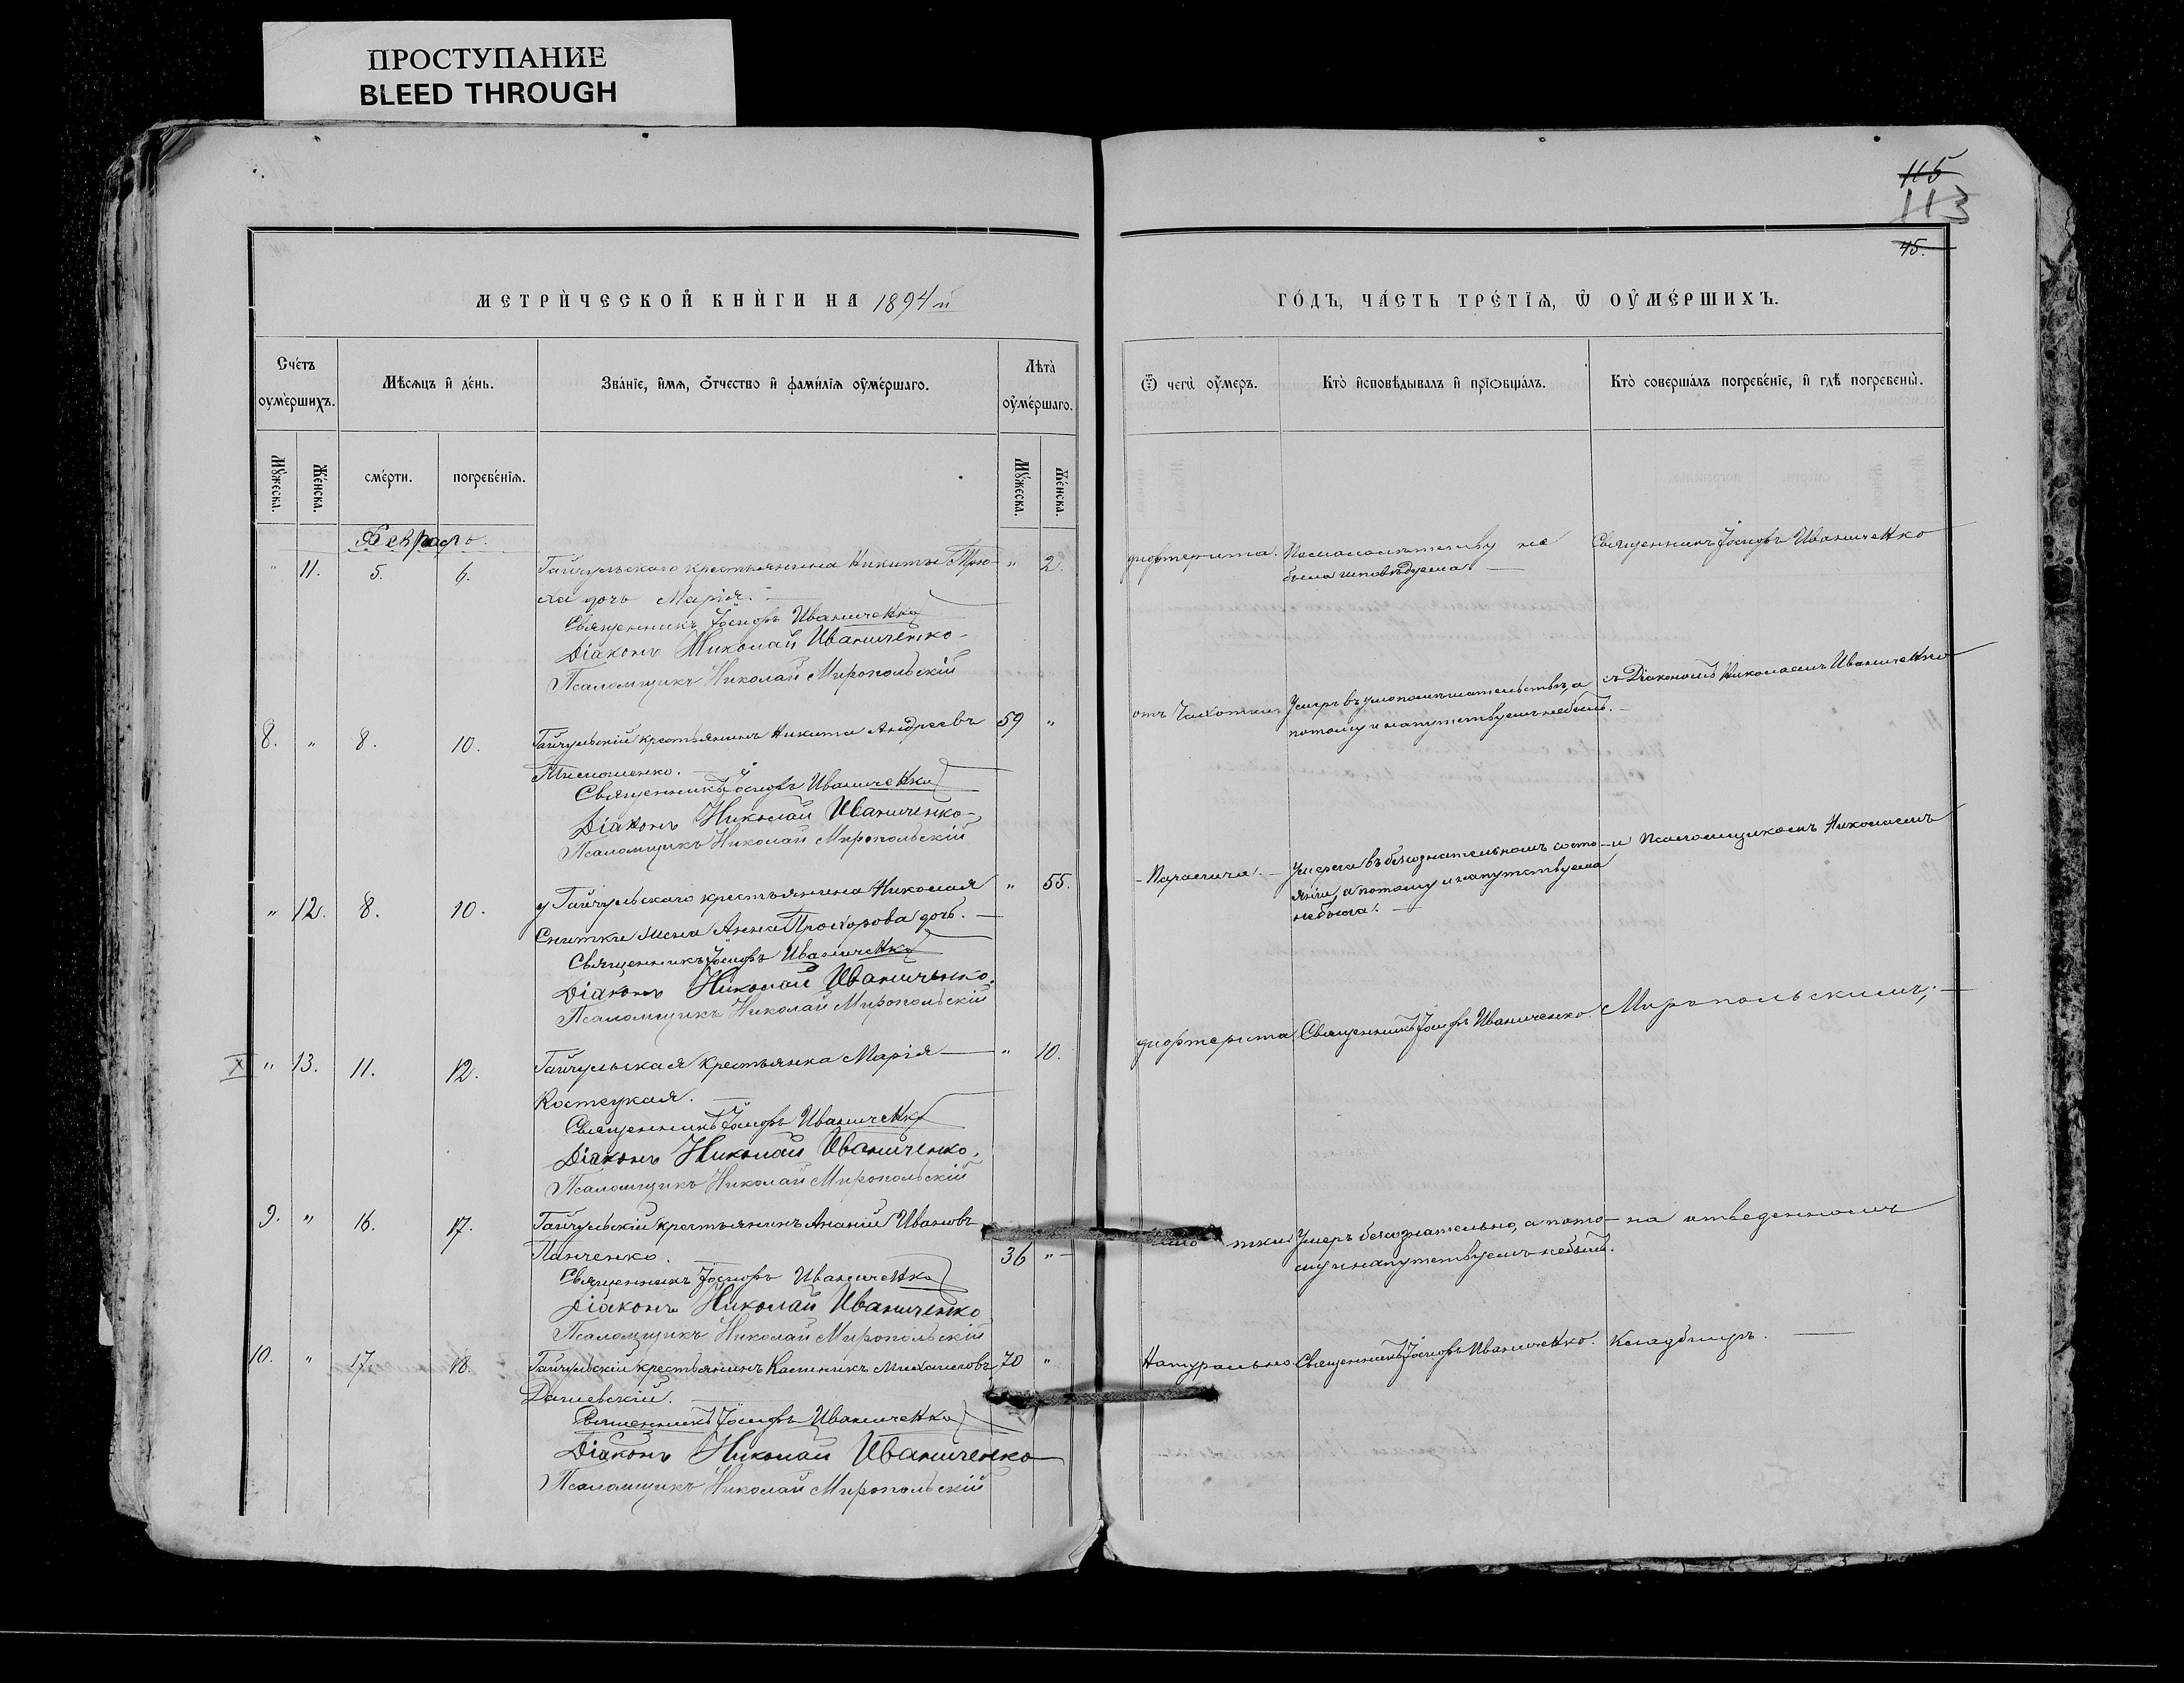 ПРОСТУПАНИЕ
BLEED THROUGH
115
113
45.
МЕТРИ́ЧЕСКОЙ КНИ́ГИ НА 1894 й
ГО́ДЪ, ЧА́СТЬ ТРЕ́ТЇѦ, Ѡ҆ ОУ҆МЕ́РШИХЪ.
Сче́тъ
оуме́ршихъ.
Мѣ́сѧцъ и҆ де́нь.
Зва́нїе, и҆́мѧ, ѻ҆́тчество и҆ фами́лїѧ оу҆ме́ршаго.
Лѣ́та
оу҆ме́ршаго.
Ѿ чегѡ̀ оу҆́меръ.
Кто̀ и҆сповѣ́дывалъ и҆ прїѻбща́лъ.
Кто̀ соверша́лъ погребе́нїе, и҆ гдѣ̀ погребены̀.
Мꙋ́жеска.
Же́нска.
сме́рти.
погребе́нїѧ.
Мꙋ́жеска.
Же́нска.
Февраль.
" 11. 5. 6. Гайчульскаго крестьянина Никиты " 2.
дочь Марія.
Священникъ Іосифъ Иваниченко
Діаконъ Николай Иваниченко
Псаломщикъ Николай Миропольскій
дифтерита. По малолѣтству не
была исповѣдуема
Священникъ Іосифъ Иваниченко
8. " 8. 10. Гайчульскій крестьянинъ Никита Андреевъ 59 "
Священникъ Іосифъ Иваниченко
Діаконъ Николай Иваниченко
Псаломщикъ Николай Миропольскій
отъ Чахотки Умеръ въ умопомѣшательствѣ, а
потому и напутствуемъ не былъ.
съ Діакономъ Николаемъ Иваниченко
" 12. 8. 10. у Гайчульскаго крестьянина Николая " 55.
Снитки жена Анна Прохорова дочь.
Священникъ Іосифъ Иваниченко
Діаконъ Николай Иваниченко
Псаломщикъ Николай Миропольскій
Паралича. Умерла въ безсознательномъ состо-
яніи, а потому и напутствуема
не была.
и Псаломщикомъ Николаемъ
X " 13. 11. 12. Гайчульская крестьянка Марія " 10.
Костецкая.
Священникъ Іосифъ Иваниченко
Діаконъ Николай Иваниченко
Псаломщикъ Николай Миропольскій
дифтерита Священникъ Іосифъ Иваниченко. Миропольскимъ;
9. " 16. 17. Гайчульскій крестьянинъ Ананій Ивановъ
Панченко. 36 "
Священникъ Іосифъ Иваниченко
Діаконъ Николай Иваниченко
Псаломщикъ Николай Миропольскій
Умеръ безсознательно, а пото-
му и напутствуемъ не былъ.
на отведенномъ
10. " 17. 18. Гайчульскій крестьянинъ Калиникъ Михаиловъ 70 "
Дашевскій.
Священникъ Іосифъ Иваниченко
Діаконъ Николай Иваниченко
Псаломщикъ Николай Миропольскій
Натурально Священникъ Іосифъ Иваниченко. Кладбищѣ.